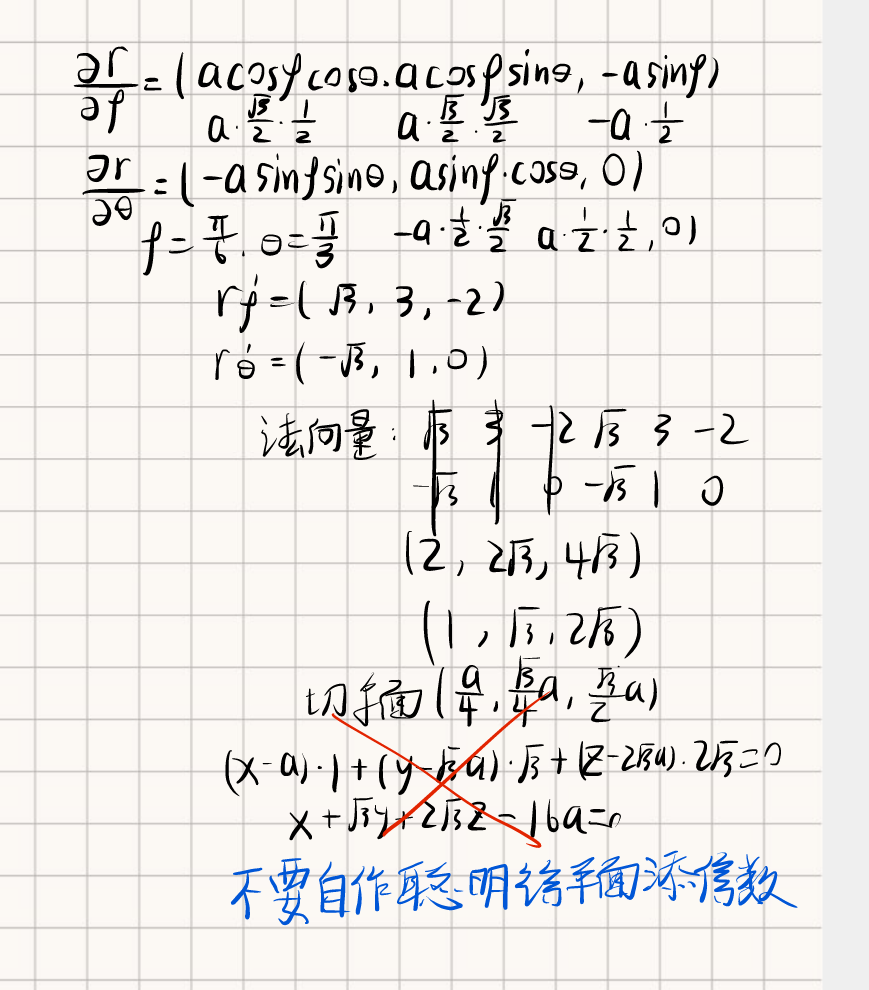 ∂r/∂φ = (a cosφ cosθ, a cosφ sinθ, -a sinφ)
a·√3/2·1/2 a·√3/2·√3/2 -a·1/2
∂r/∂θ = (-a sinφ sinθ, a sinφ·cosθ, 0)
φ = π/6, θ = π/3 -a·1/2·√3/2 a·1/2·1/2, 0)
rφ' = (√3, 3, -2)
rθ' = (-√3, 1, 0)
法向量: √3 3 -2 √3 3 -2
-√3 1 0 -√3 1 0
(2, 2√3, 4√3)
(1, √3, 2√3)
切平面 (a/4, √3/4 a, √3/2 a)
(x-a)·1+(y-√3a)·√3+(z-2√3a)·2√3=0
x+√3y+2√3z-16a=0
不要自作聪明给平面添倍数